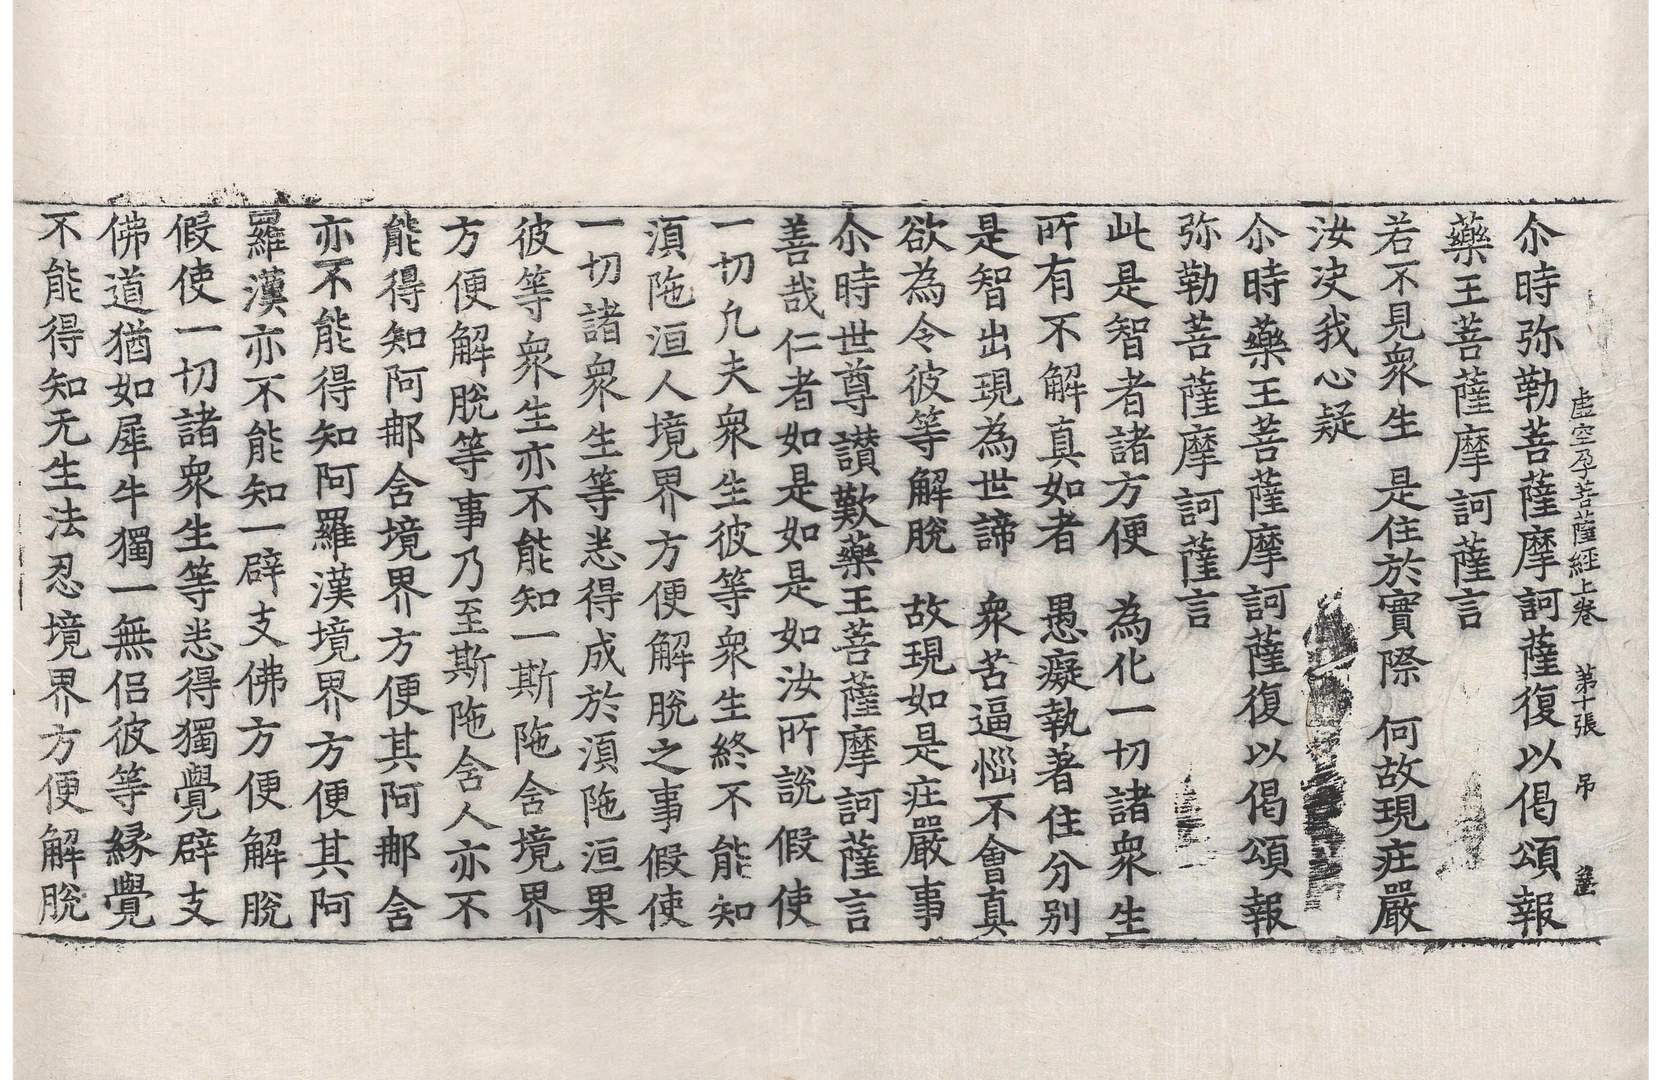 虚空孕菩薩經上卷 第十張 吊
尒時弥勒菩薩摩訶薩復以偈頌報
藥王菩薩摩訶薩言
若不見衆生 是住於實際 何故現疰嚴
汝决我心疑
尒時藥王菩薩摩訶薩復以偈頌報
弥勒菩薩摩訶薩言
此是智者諸方便 為化一切諸衆生
所有不解真如者 愚癡執著住分别
是智出現為世諦 衆苦逼惱不會真
欲為令彼等解脫 故現如是疰嚴事
尒時世尊讃歎藥王菩薩摩訶薩言
善哉仁者如是如是如汝所說假使
一切凢夫衆生彼等衆生終不能知
湏陁洹人境界方便解脫之事假使
一切諸衆生等悉得成於湏陁洹果
彼等衆生亦不能知一斯陁含境界
方便解脫等事乃至斯陁含人亦不
能得知阿那含境界方便其阿那含
亦不能得知阿羅漢境界方便其阿
羅漢亦不能知一辟支佛方便解脫
假使一切諸衆生等悉得獨覺辟支
佛道猶如犀牛獨一無侣彼等緣覺
不能得知无生法忍境界方便解脫